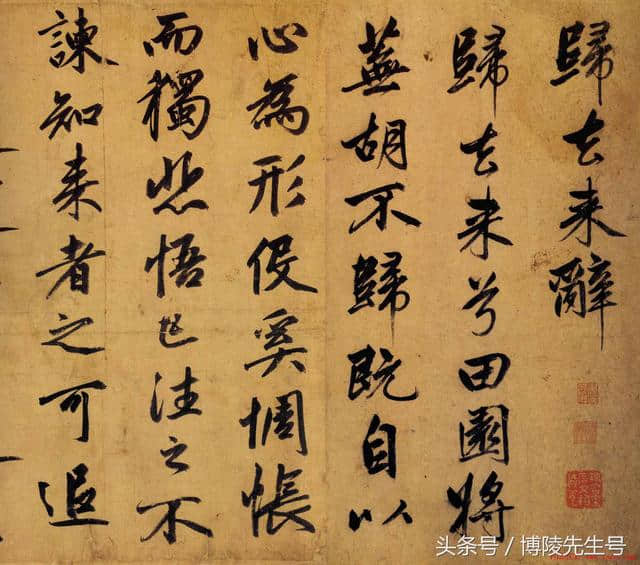 歸去来辭
歸去来兮田園將
蕪胡不歸既自以
心為形役奚惆悵
而獨悲悟已往之不
諫知来者之可追
头条号/博陵先生号